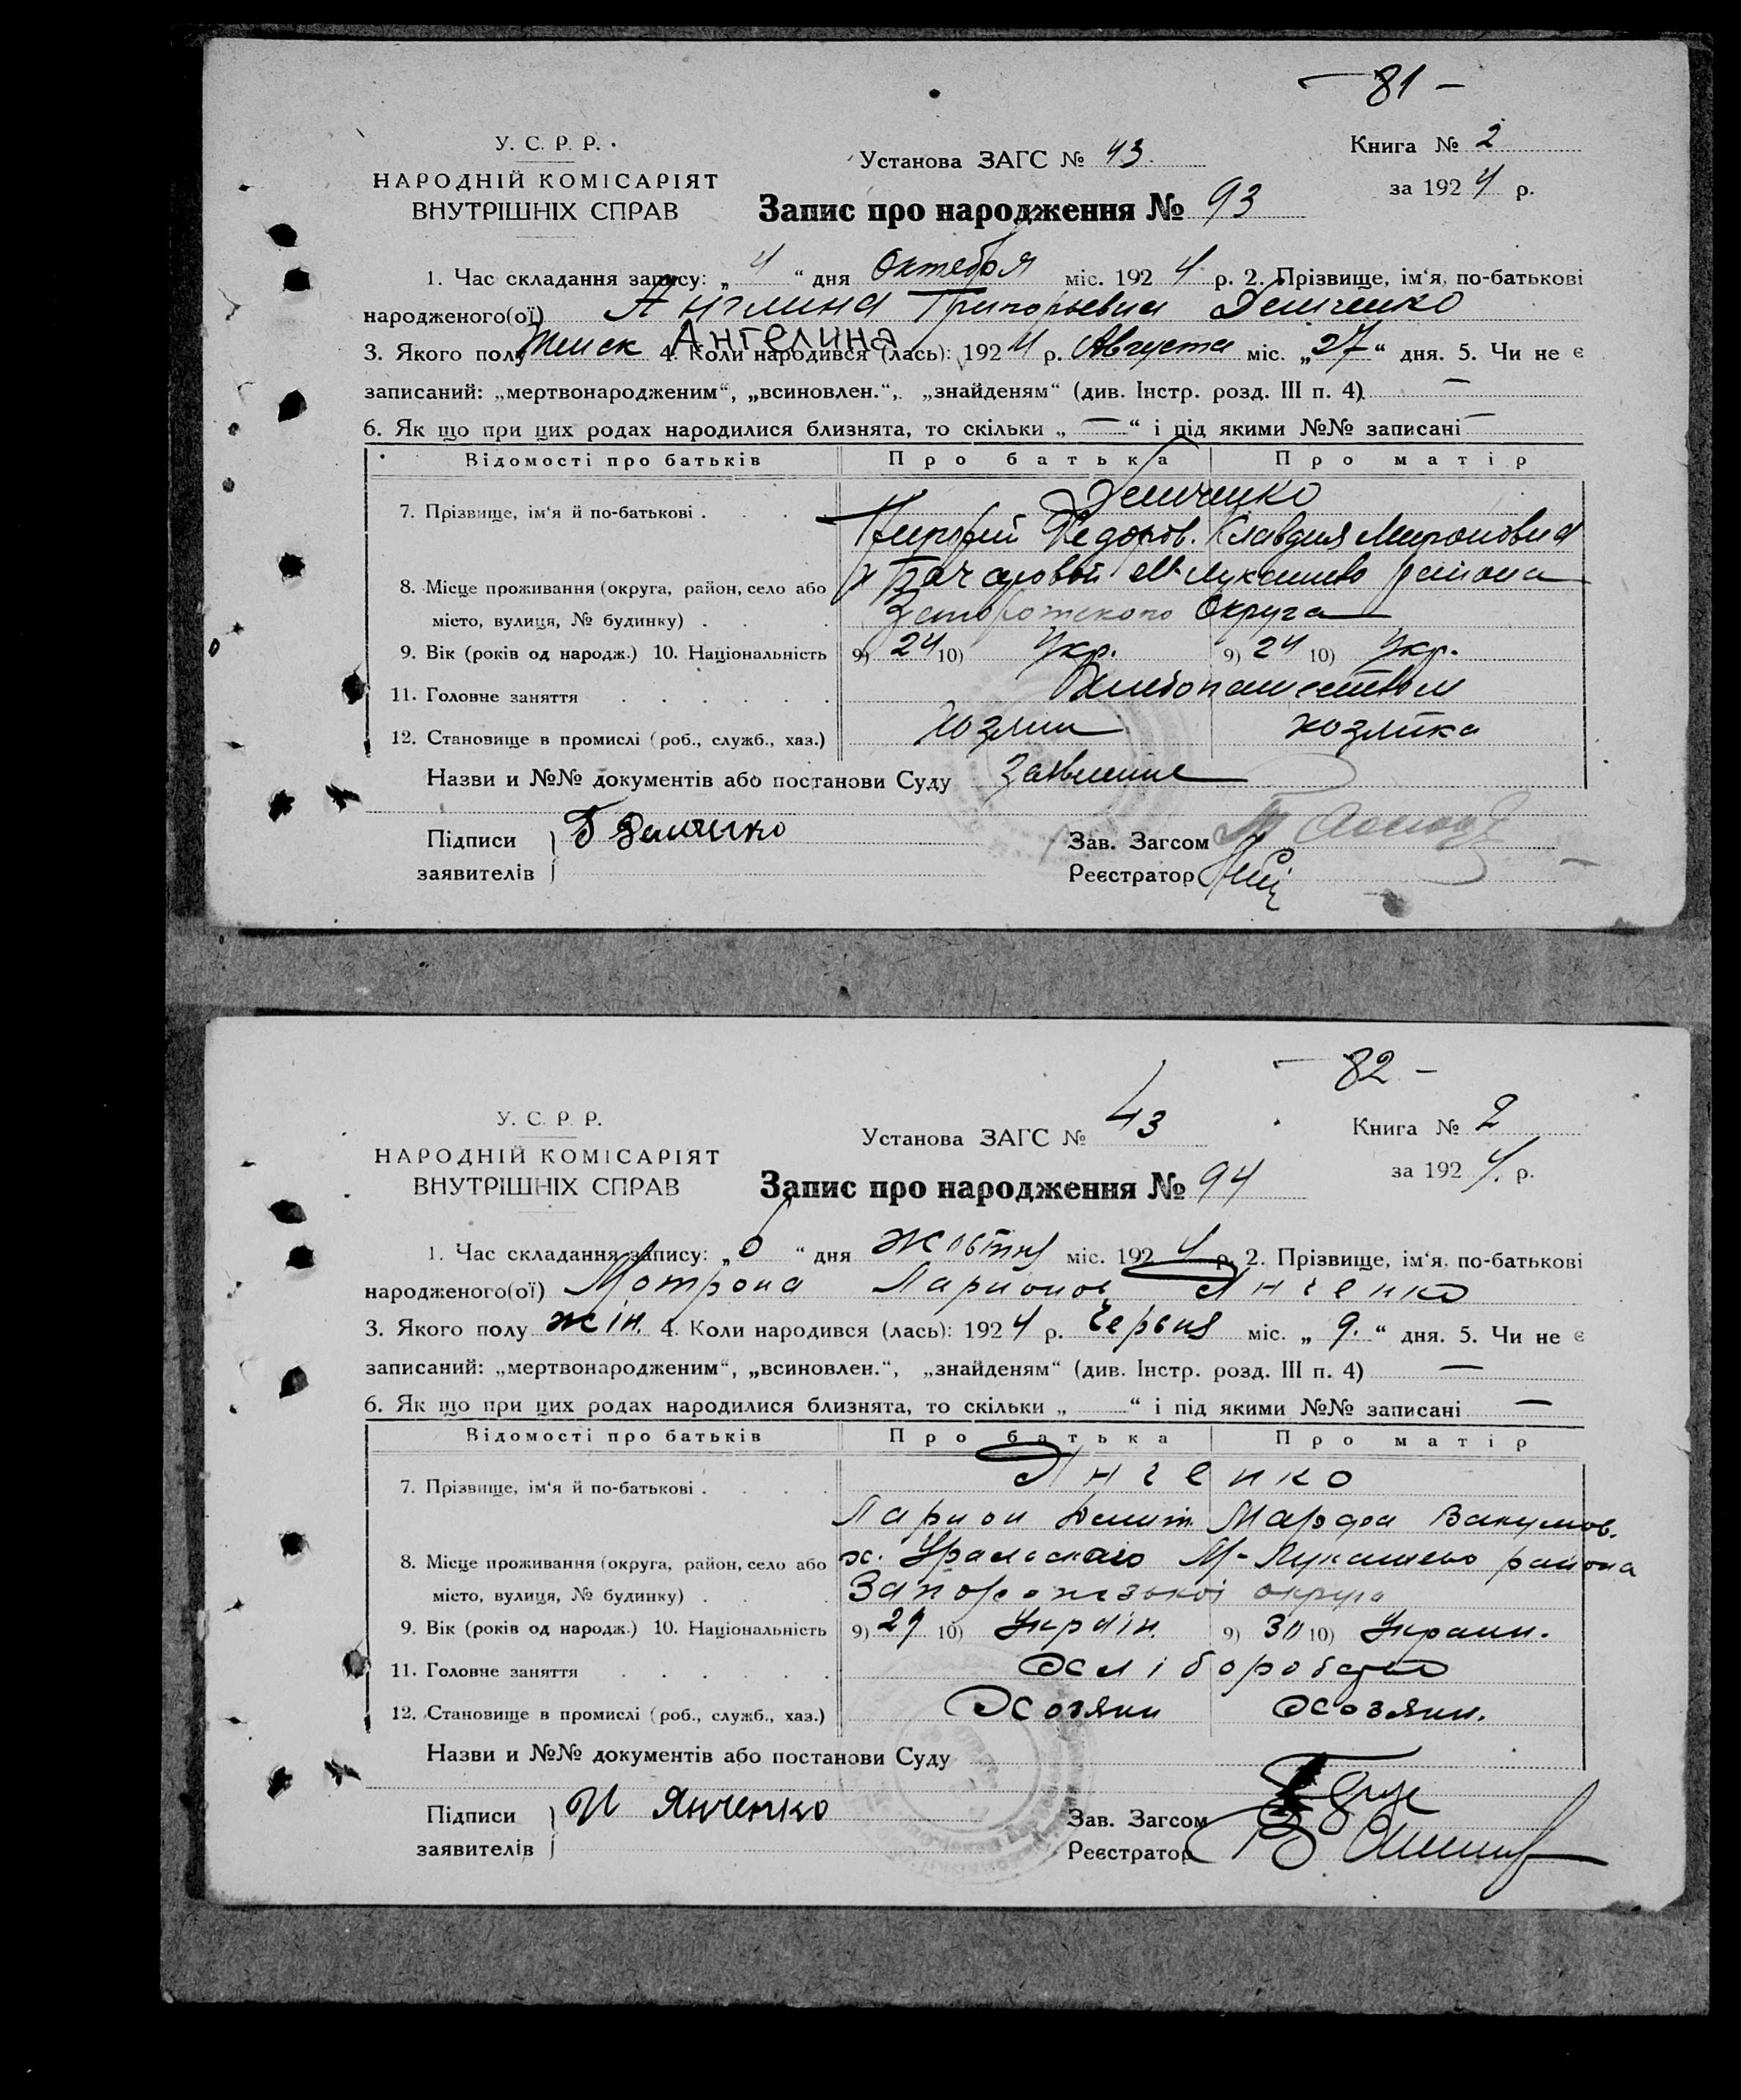 — 81 —
У. С. Р. Р.
НАРОДНІЙ КОМІСАРІЯТ
ВНУТРІШНІХ СПРАВ
Установа ЗАГС № 43.
Запис про народження № 93
Книга № 2
за 1924 р.
1. Час складання запису: „ 4 “ дня Октебря міс. 1924 р. 2. Прізвище, ім‘я, по-батькові
народженого(ої) Григорьевна Демченко
Ангелина
3. Якого полу Женск 4. Коли народився (лась): 1924 р. Августа міс. „27“ дня. 5. Чи не є
записаний: „мертвонародженим“, „всиновлен.“, „знайденям“ (див. Інстр. розд. III п. 4) —
6. Як що при цих родах народилися близнята, то скільки „ — “ і під якими №№ записані —
Відомості про батьків Про батька Про матір
7. Прізвище, ім‘я й по-батькові . . . . Демченко
Григорий Федоров. Клавдия Мироновна
8. Місце проживання (округа, район, село або х М-Лукашево района
місто, вулиця, № будинку) . . . Запорожского Округа
9. Вік (років од народж.) 10. Національність 9) 24 10) Укр. 9) 24 10) Укр.
11. Головне заняття . . . . . . Хлебопашеством
12. Становище в промислі (роб., служб., хаз.) хозяин хозяйка
Назви и №№ документів або постанови Суду Заявление
Підписи
заявителів
Г Демченко
Зав. Загсом
Реєстратор
— 82 —
У. С. Р. Р.
НАРОДНІЙ КОМІСАРІЯТ
ВНУТРІШНІХ СПРАВ
Установа ЗАГС № 43
Запис про народження № 94
Книга № 2
за 1924. р.
1. Час складання запису: „ “ дня Жовтня міс. 1924 р. 2. Прізвище, ім‘я, по-батькові
народженого(ої) Мотрона Ларионов Янченко
3. Якого полу жін. 4. Коли народився (лась): 1924 р. Червня міс. „ 9. “ дня. 5. Чи не є
записаний: „мертвонародженим“, „всиновлен.“, „знайденям“ (див. Інстр. розд. III п. 4) —
6. Як що при цих родах народилися близнята, то скільки „ “ і під якими №№ записані —
Відомості про батьків Про батька Про матір
7. Прізвище, ім‘я й по-батькові . . . . Янченко
Ларион Демит. Марфа Вакумов.
8. Місце проживання (округа, район, село або х. Уральскаго М-Лукашево района
місто, вулиця, № будинку) . . . Запорожзької округа
9. Вік (років од народж.) 10. Національність 9) 10) Україн. 9) 30 10) Украин.
11. Головне заняття . . . . . . Хліборобство
12. Становище в промислі (роб., служб., хаз.) Хозяин Хозяин.
Назви и №№ документів або постанови Суду
Підписи
заявителів
И Янченко
Зав. Загсом
Реєстратор